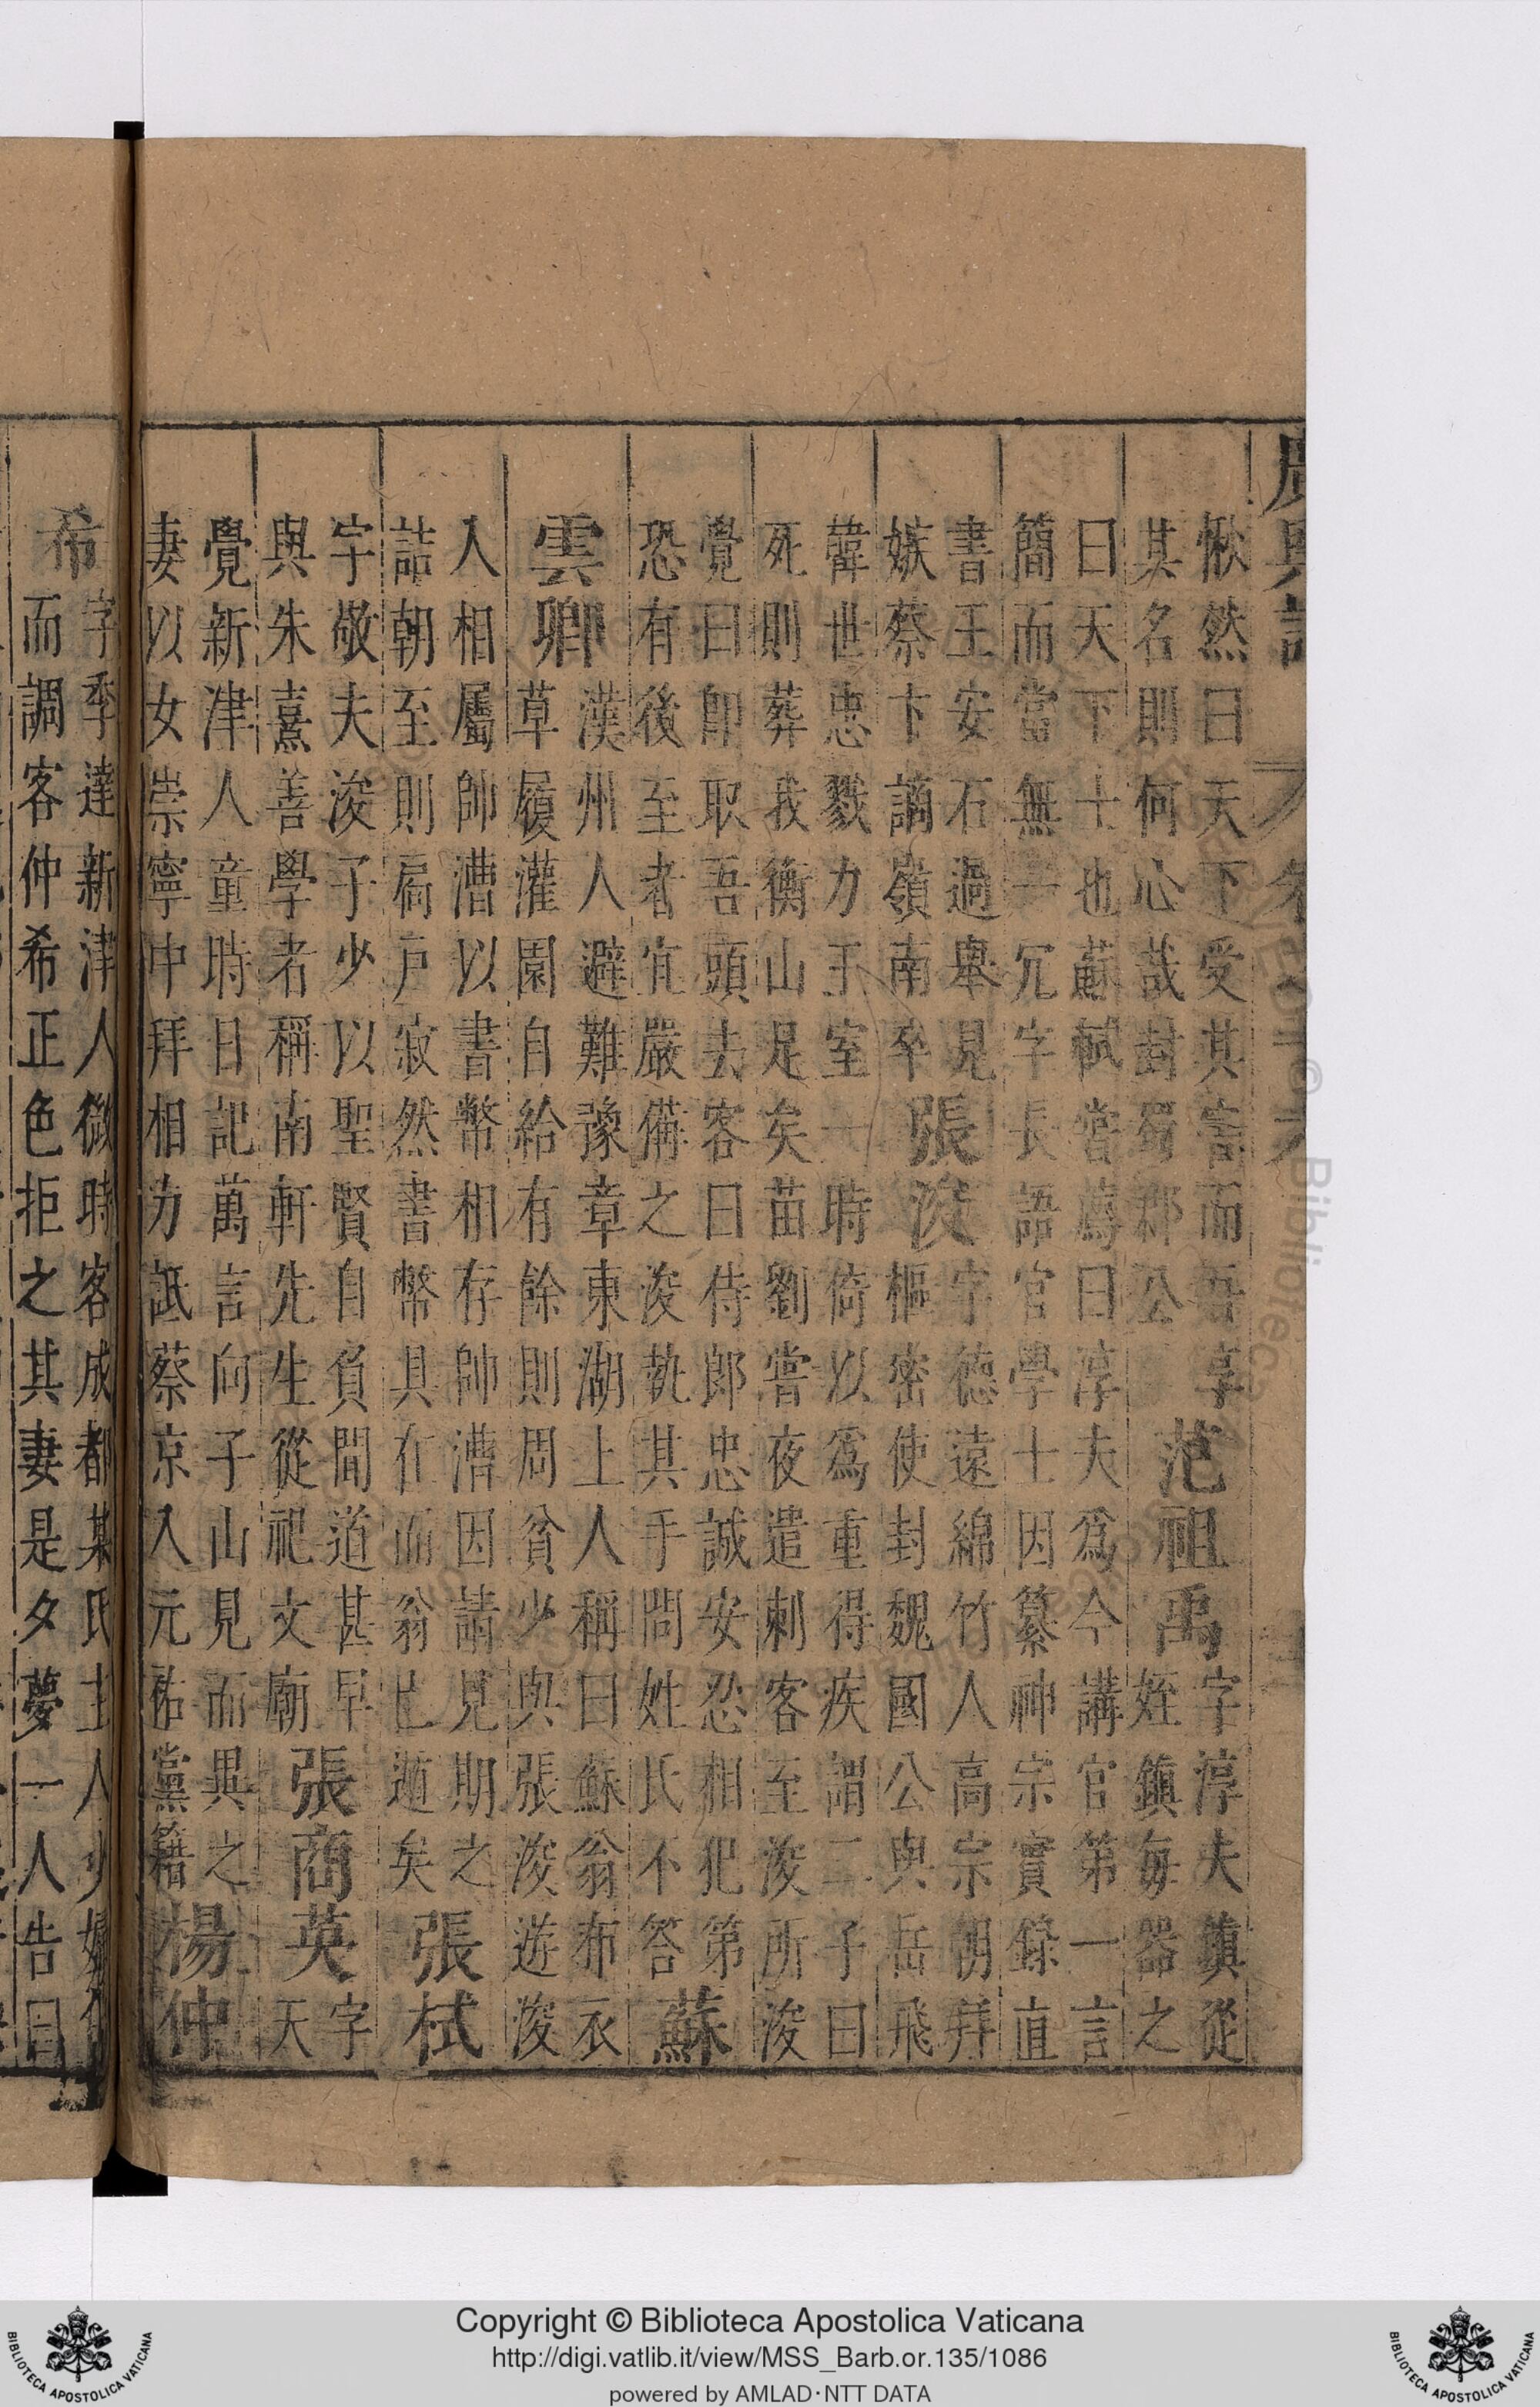 廣輿記
愀然曰天下受其害而吾享
其名則何心哉封蜀郡公
范祖禹
字淳夫鎮從
姪鎮每器之
曰天下士也蘇軾嘗薦曰淳夫爲今講官第一言
簡而當無一冗字長語官學士因纂神宗實錄直
書王安石過舉見
嫉蔡卞謫嶺南卒
張浚
字德遠綿竹人高宗朝拜
樞密使封魏國公與岳飛
韓世忠戮力王室一時倚以爲重得疾謂二子曰
死則葬我衡山足矣苗劉嘗夜遣刺客至浚所浚
覺曰卽取吾頭去客曰侍郎忠誠安忍相犯第
恐有後至者宜嚴備之浚執其手問姓氏不答
蘇
雲卿
漢州人避難豫章東湖上人稱曰蘇翁布衣
草履灌園自給有餘則周貧少與張浚遊浚
入相屬帥漕以書幣相存帥漕因請見期之
詰朝至則扃戶寂然書幣具在而翁已遁矣
張栻
字敬夫浚子少以聖賢自負聞道甚早
與朱熹善學者稱南軒先生從祀文廟
張商英
字
天
覺新津人童時日記萬言向子山見而異之
妻以女崇寧中拜相力詆蔡京入元祐黨籍
楊仲
希
字季達新津人微時客成都某氏主人少婦
而調客仲希正色拒之其妻是夕夢一人告曰
Copyright © Biblioteca Apostolica Vaticana
http://digi.vatlib.it/view/MSS_Barb.or.135/1086
powered by AMLAD·NTT DATA
BIBLIOTECA APOSTOLICA VATICANA
BIBLIOTECA APOSTOLICA VATICANA